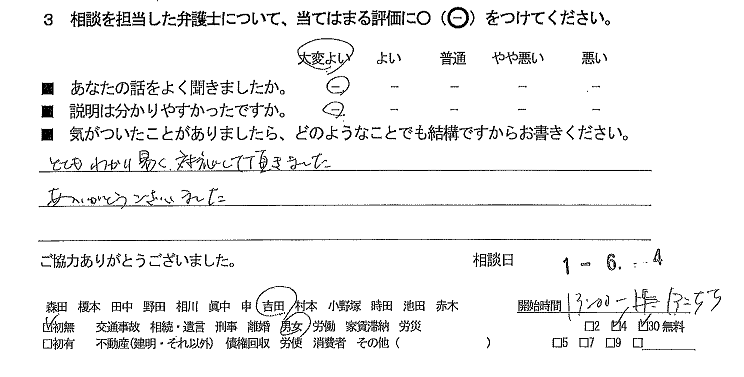 3 相談を担当した弁護士について、当てはまる評価に○(㊀)をつけてください。
大変よい よい 普通 やや悪い 悪い
■ あなたの話をよく聞きましたか。 - - - - -
■ 説明は分かりやすかったですか。 - - - - -
■ 気がついたことがありましたら、どのようなことでも結構ですからお書きください。
とても わかり易く、対応して頂きました
ありがとうございました
ご協力ありがとうございました。 相談日 1-6.-4
森田 榎本 田中 野田 相川 眞中 申 吉田 村本 小野塚 時田 池田 赤木 開始時間 13:00-
☑初無 交通事故 相続・遺言 刑事 離婚 男女 労働 家賃滞納 労災 □2 ☑4 ☑30 無料
□初有 不動産(建明・それ以外) 債権回収 労使 消費者 その他( ) □5 □7 □9 □